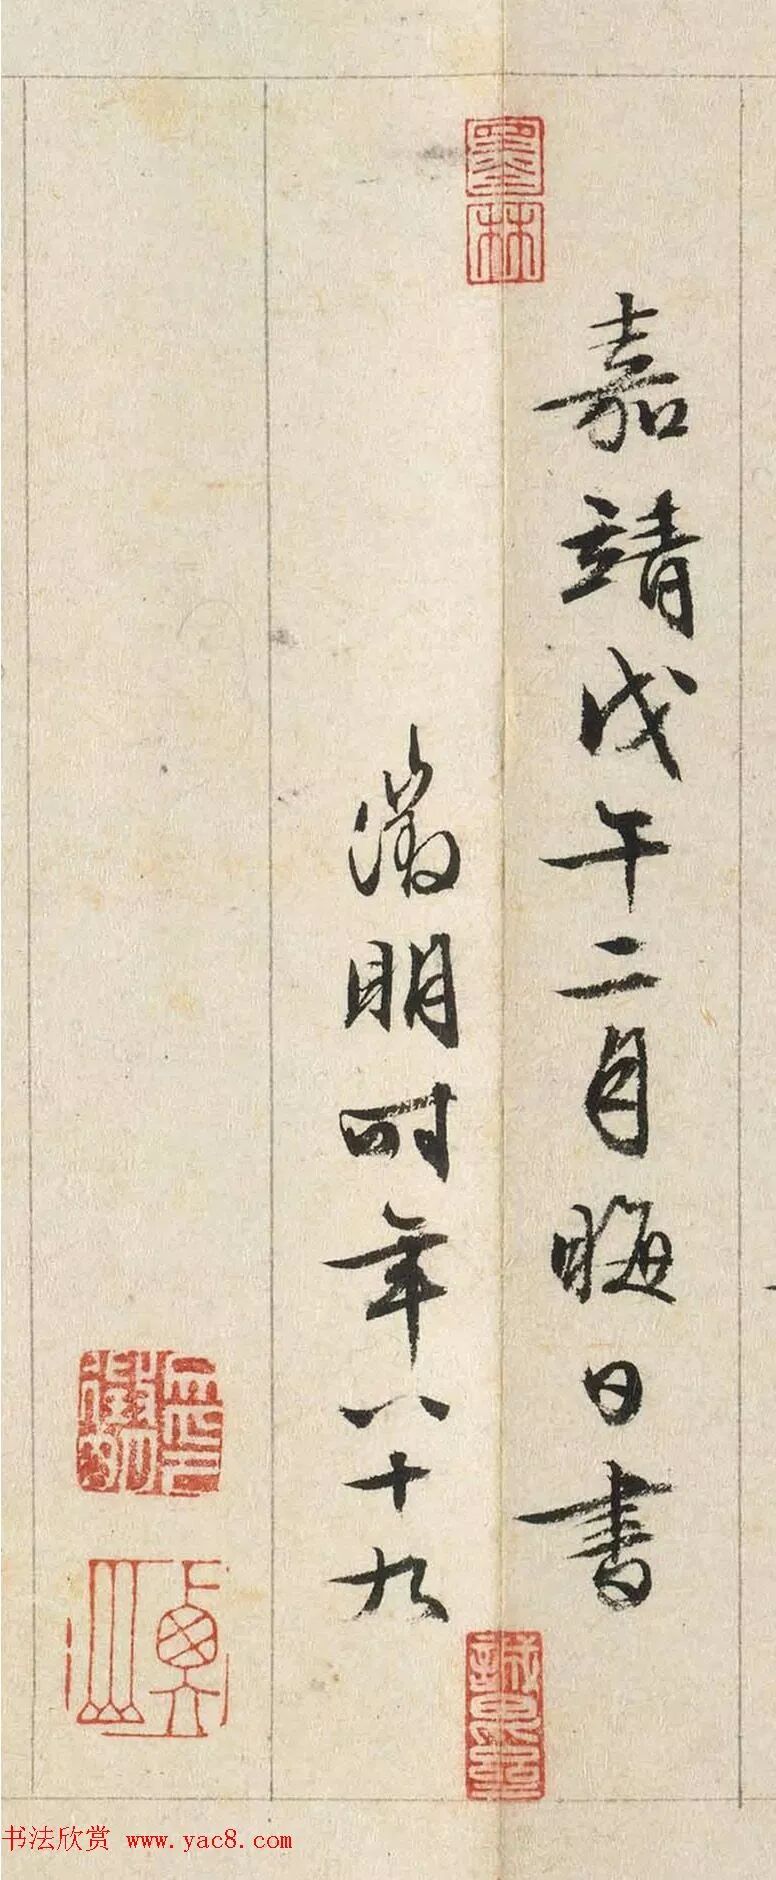 嘉靖戊午二月晦日書
徵明時年八十九
墨林
徵明
书法欣赏 www.yac8.com